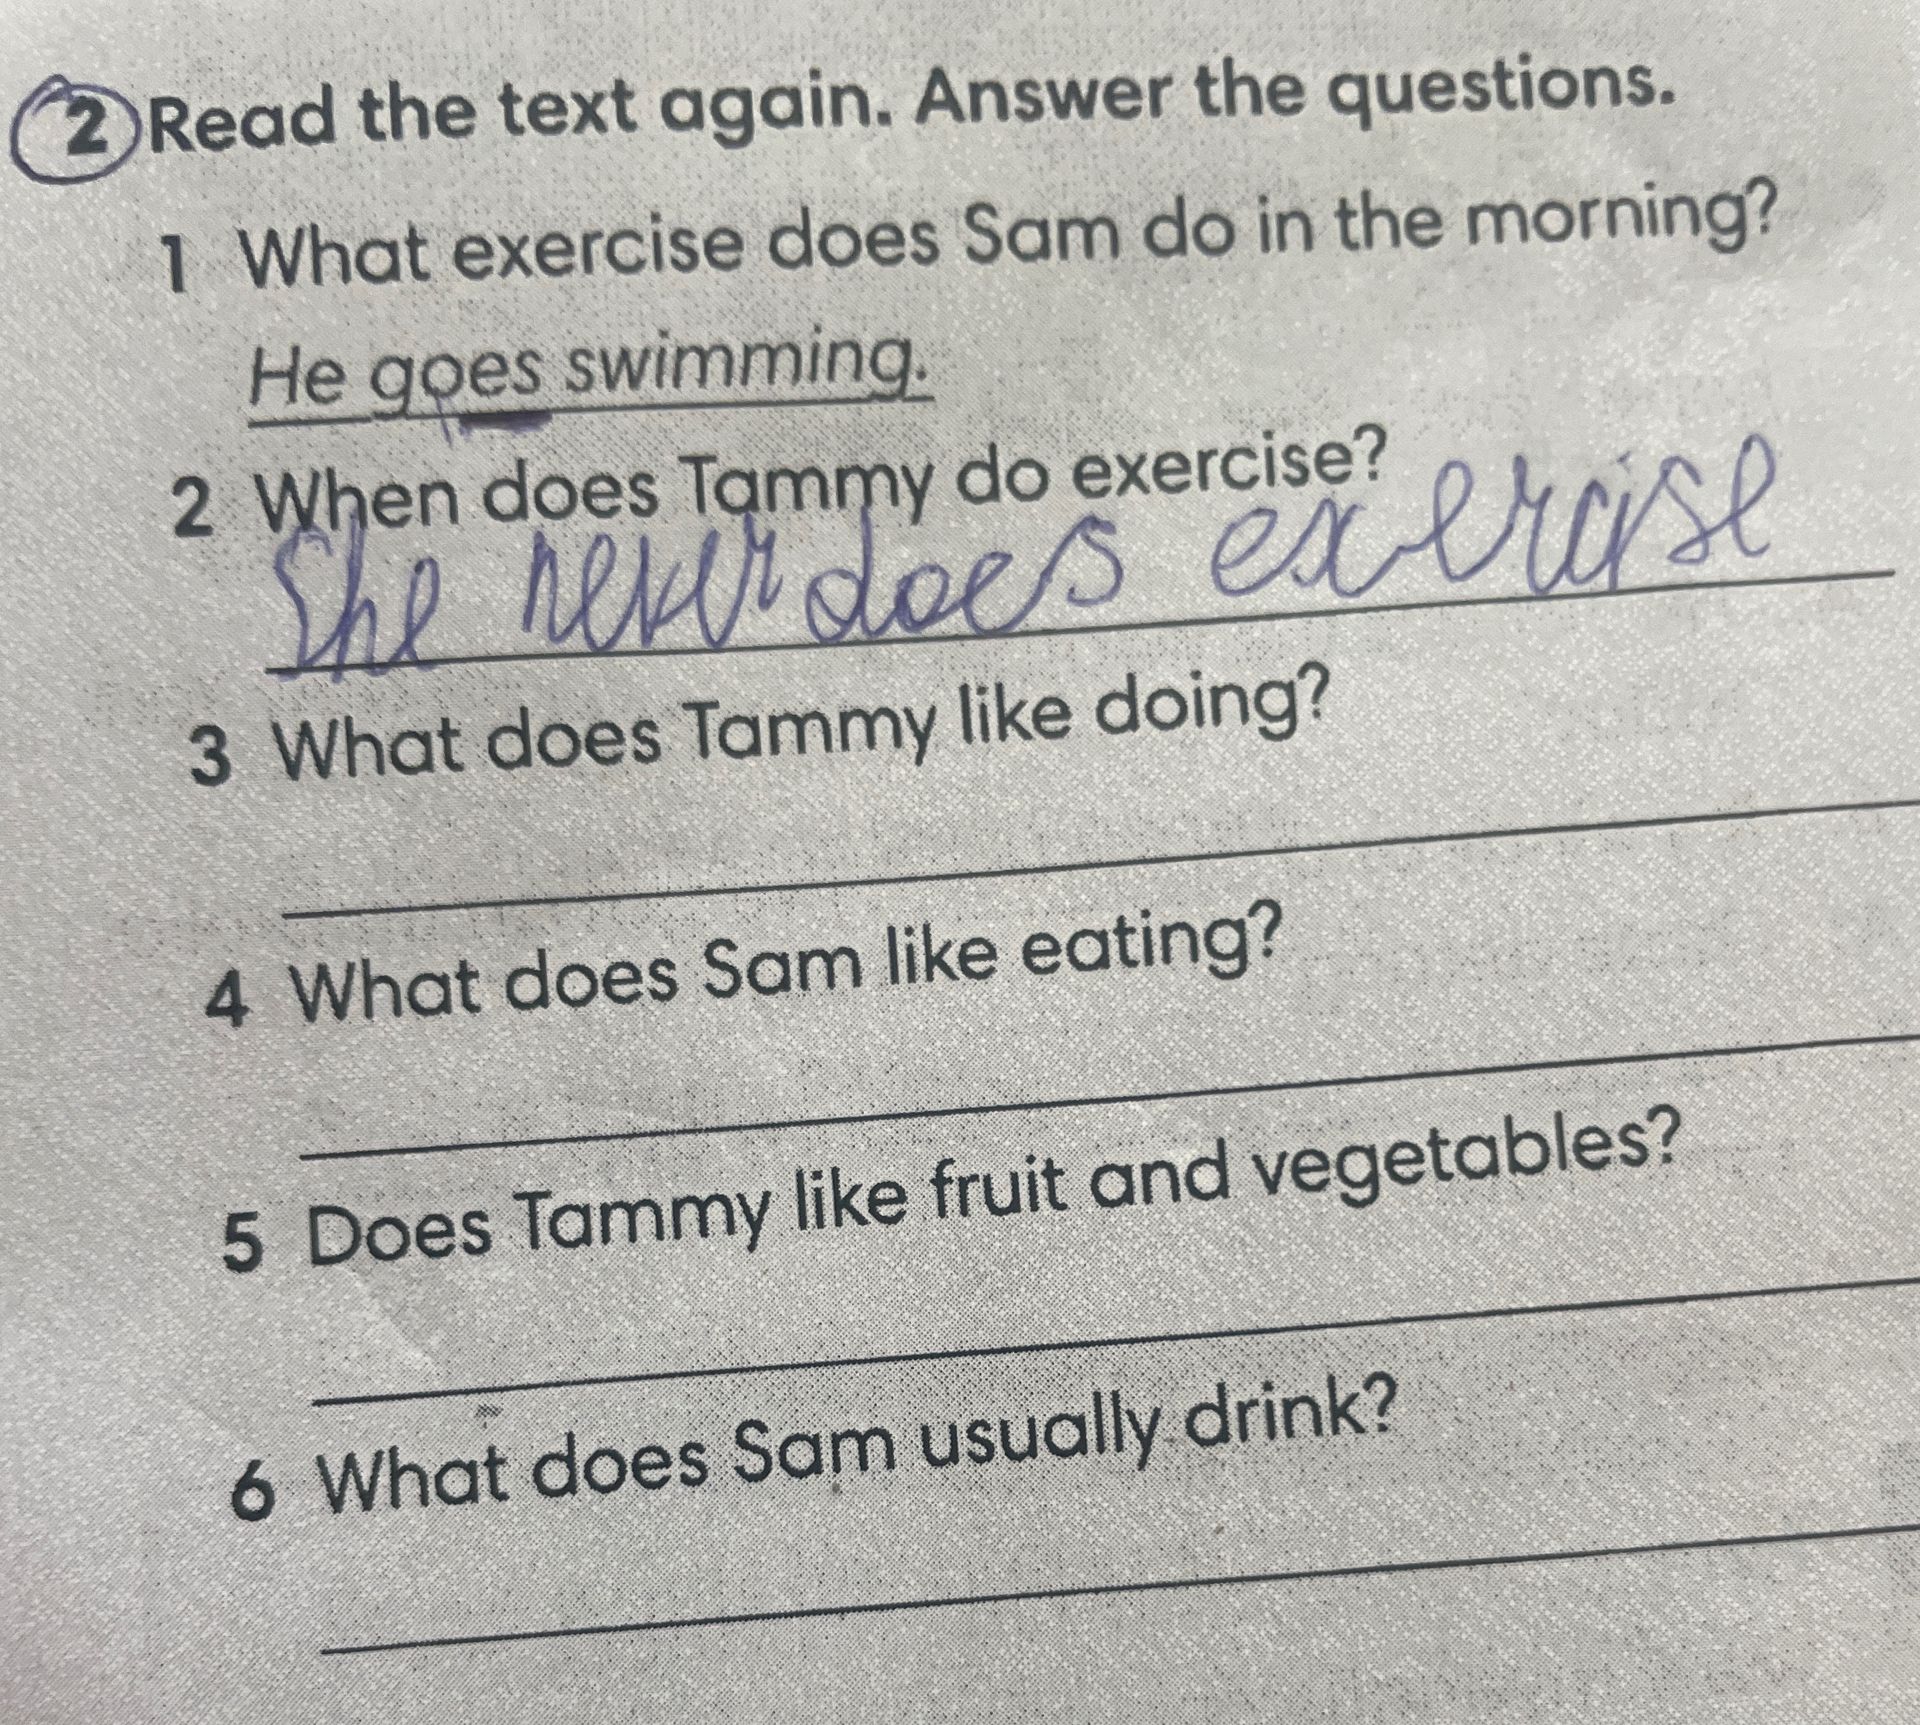 2 Read the text again. Answer the questions.
1 What exercise does Sam do in the morning?
He goes swimming.
2 When does Tammy do exercise?
She never does exercise
3 What does Tammy like doing?
4 What does Sam like eating?
5 Does Tammy like fruit and vegetables?
6 What does Sam usually drink?